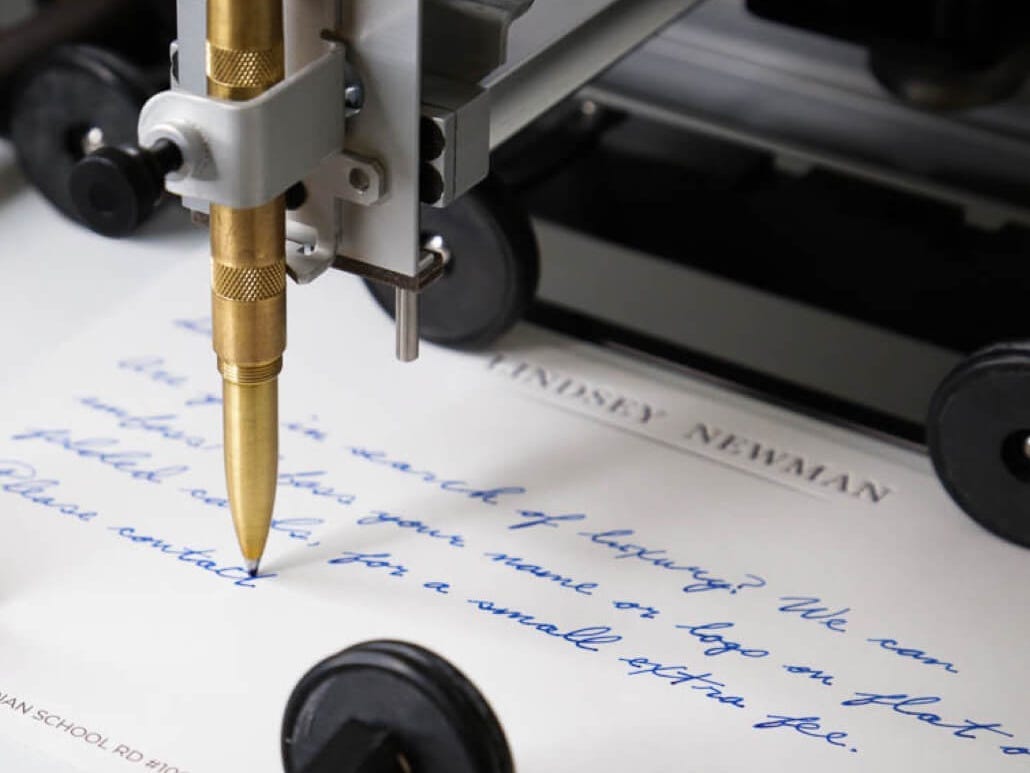 LINDSEY NEWMAN
Are in search of luxury? We can
your name or logo on flat
folded cards, for a small extra fee.
Please contact
SCHOOL RD